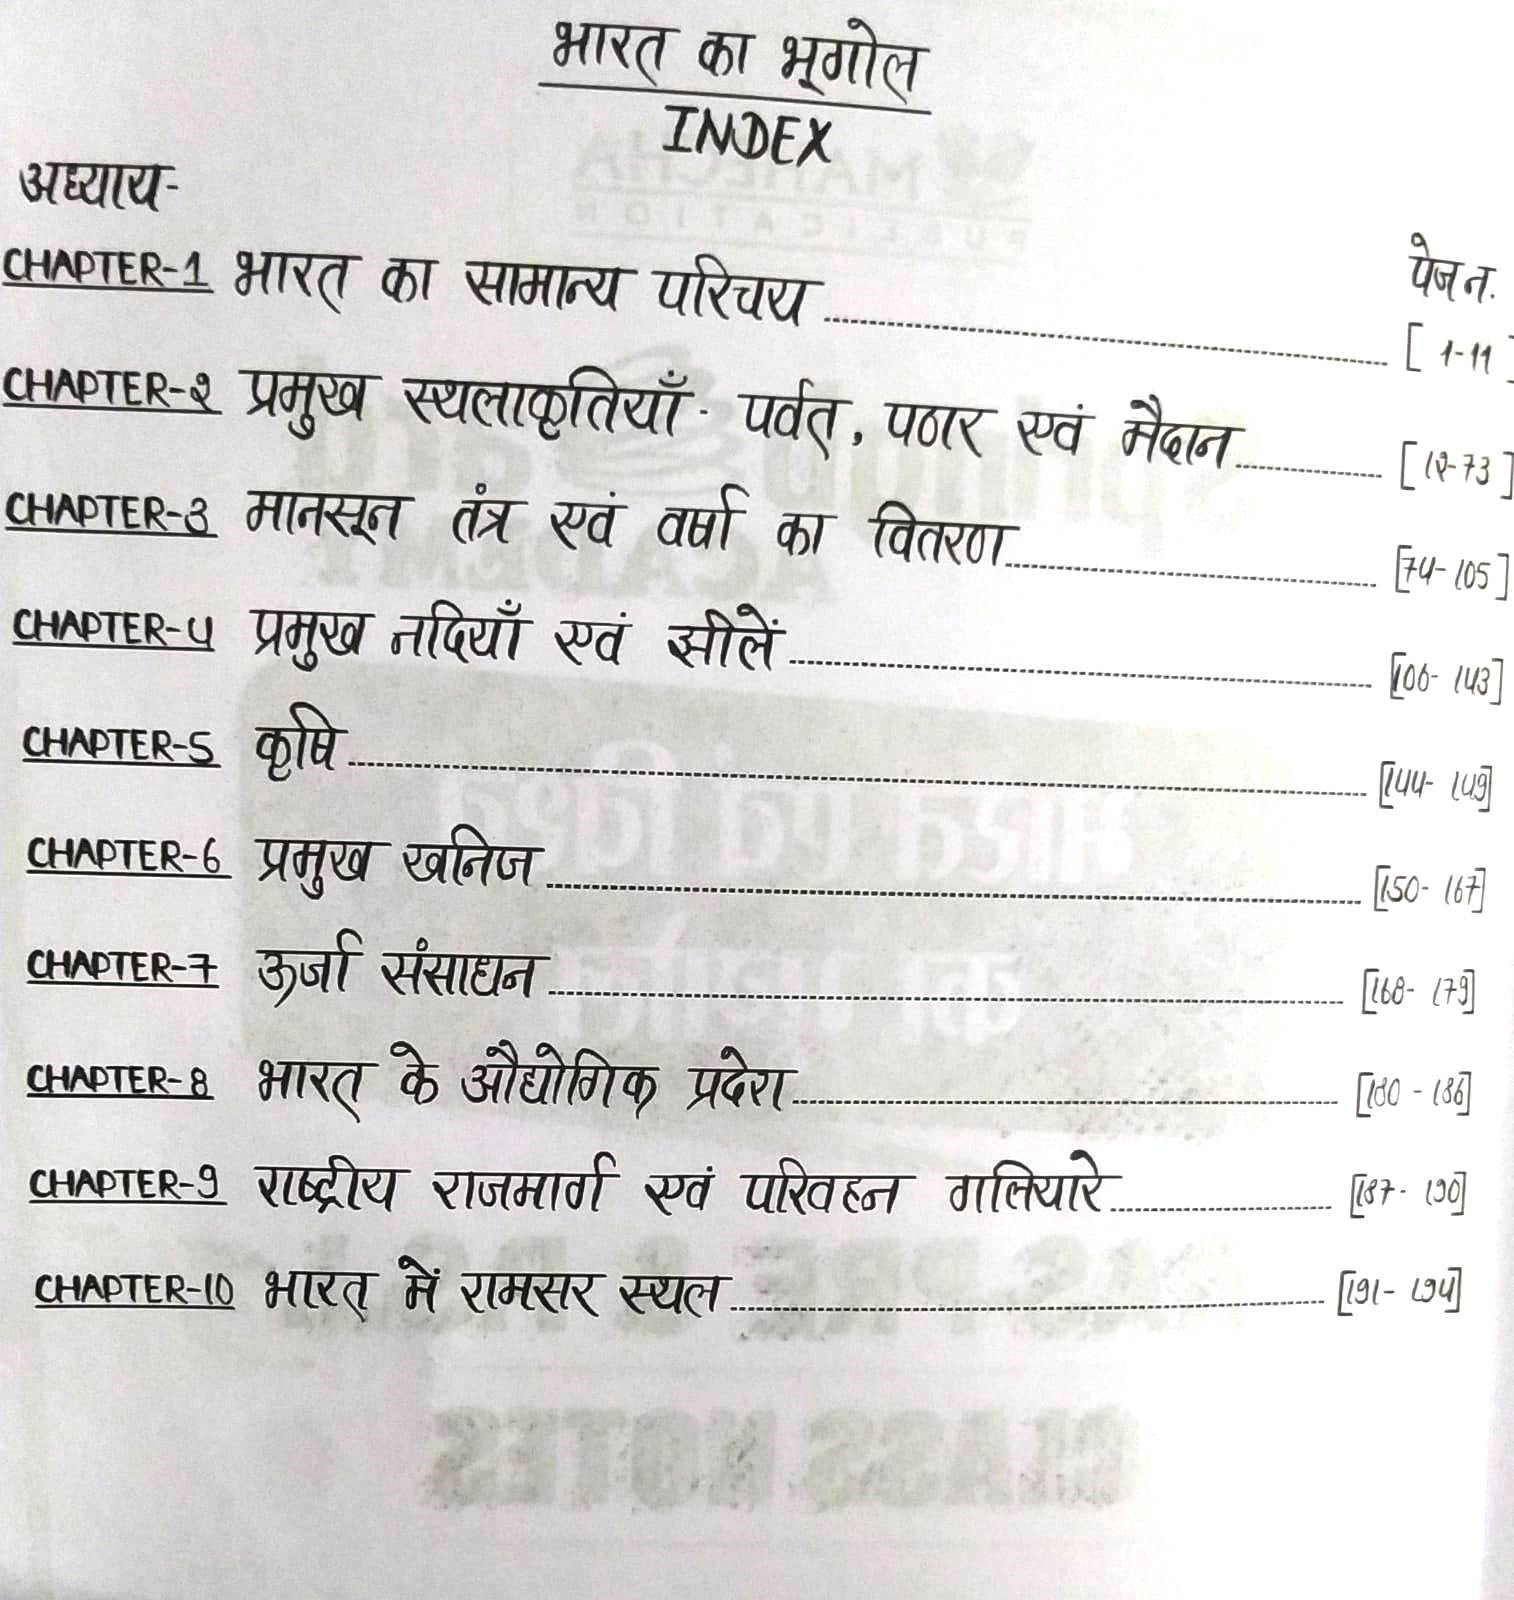 भारत का भूगोल
INDEX
अध्याय-
पेज न.
CHAPTER-1 भारत का सामान्य परिचय [ 1-11 ]
CHAPTER-2 प्रमुख स्थलाकृतियाँ - पर्वत, पठार एवं मैदान [ 12-73 ]
CHAPTER-3 मानसून तंत्र एवं वर्षा का वितरण [74- 105]
CHAPTER-4 प्रमुख नदियाँ एवं झीलें [106- 143]
CHAPTER-5 कृषि [144- 149]
CHAPTER-6 प्रमुख खनिज [150- 167]
CHAPTER-7 ऊर्जा संसाधन [168- 179]
CHAPTER-8 भारत के औद्योगिक प्रदेश [180 - 186]
CHAPTER-9 राष्ट्रीय राजमार्ग एवं परिवहन गलियारे [187- 190]
CHAPTER-10 भारत में रामसर स्थल [191- 194]